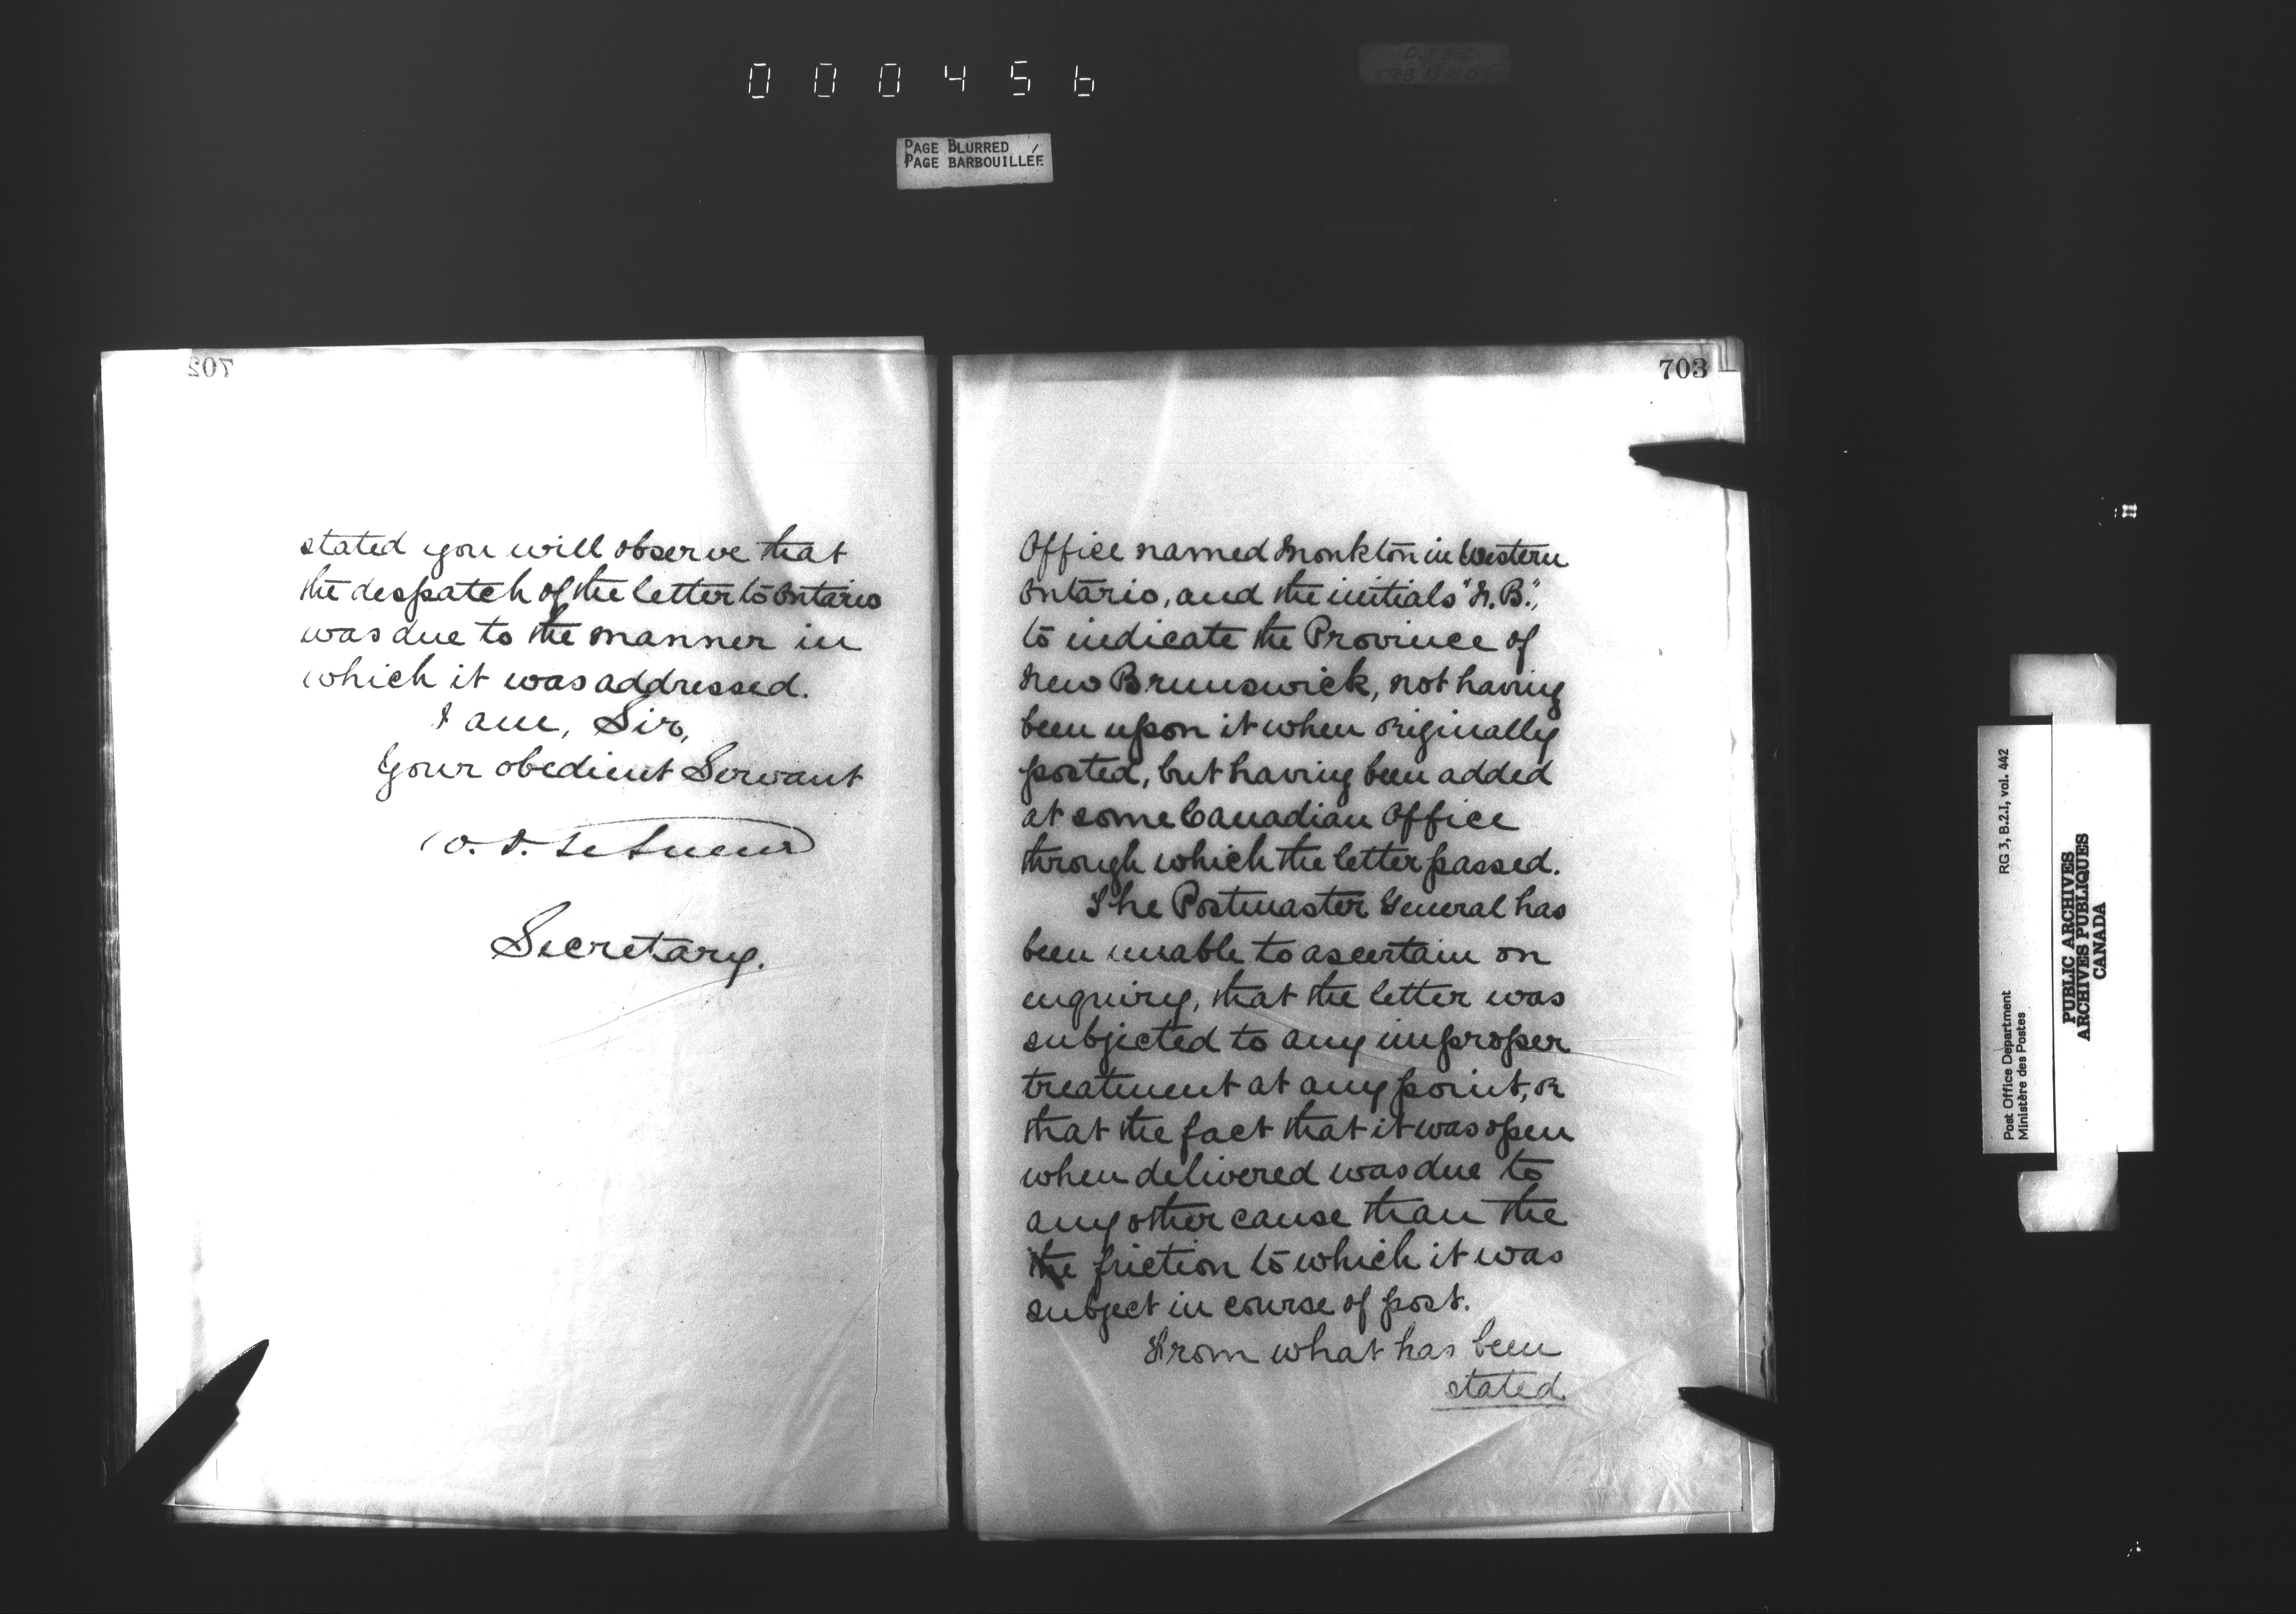 000456
PAGE BLURRED
PAGE BARBOUILLÉE
702
stated you will observe that
the despatch of the letter to Ontario
was due to the manner in
which it was addressed.
I am, Sir,
Your obedient Servant
W. D. LeSueur
Secretary.
703
Office named Monkton in Western
Ontario, and the initials "N.B.",
to indicate the Province of
New Brunswick, not having
been upon it when originally
posted, but having been added
at some Canadian Office
through which the letter passed.
The Postmaster General has
been unable to ascertain on
enquiry, that the letter was
subjected to any improper
treatment at any point, or
that the fact that it was open
when delivered was due to
any other cause than the
the friction to which it was
subject in course of post.
From what has been
stated
Post Office Department
Ministère des Postes
RG 3, B.2.I, vol. 442
PUBLIC ARCHIVES
ARCHIVES PUBLIQUES
CANADA